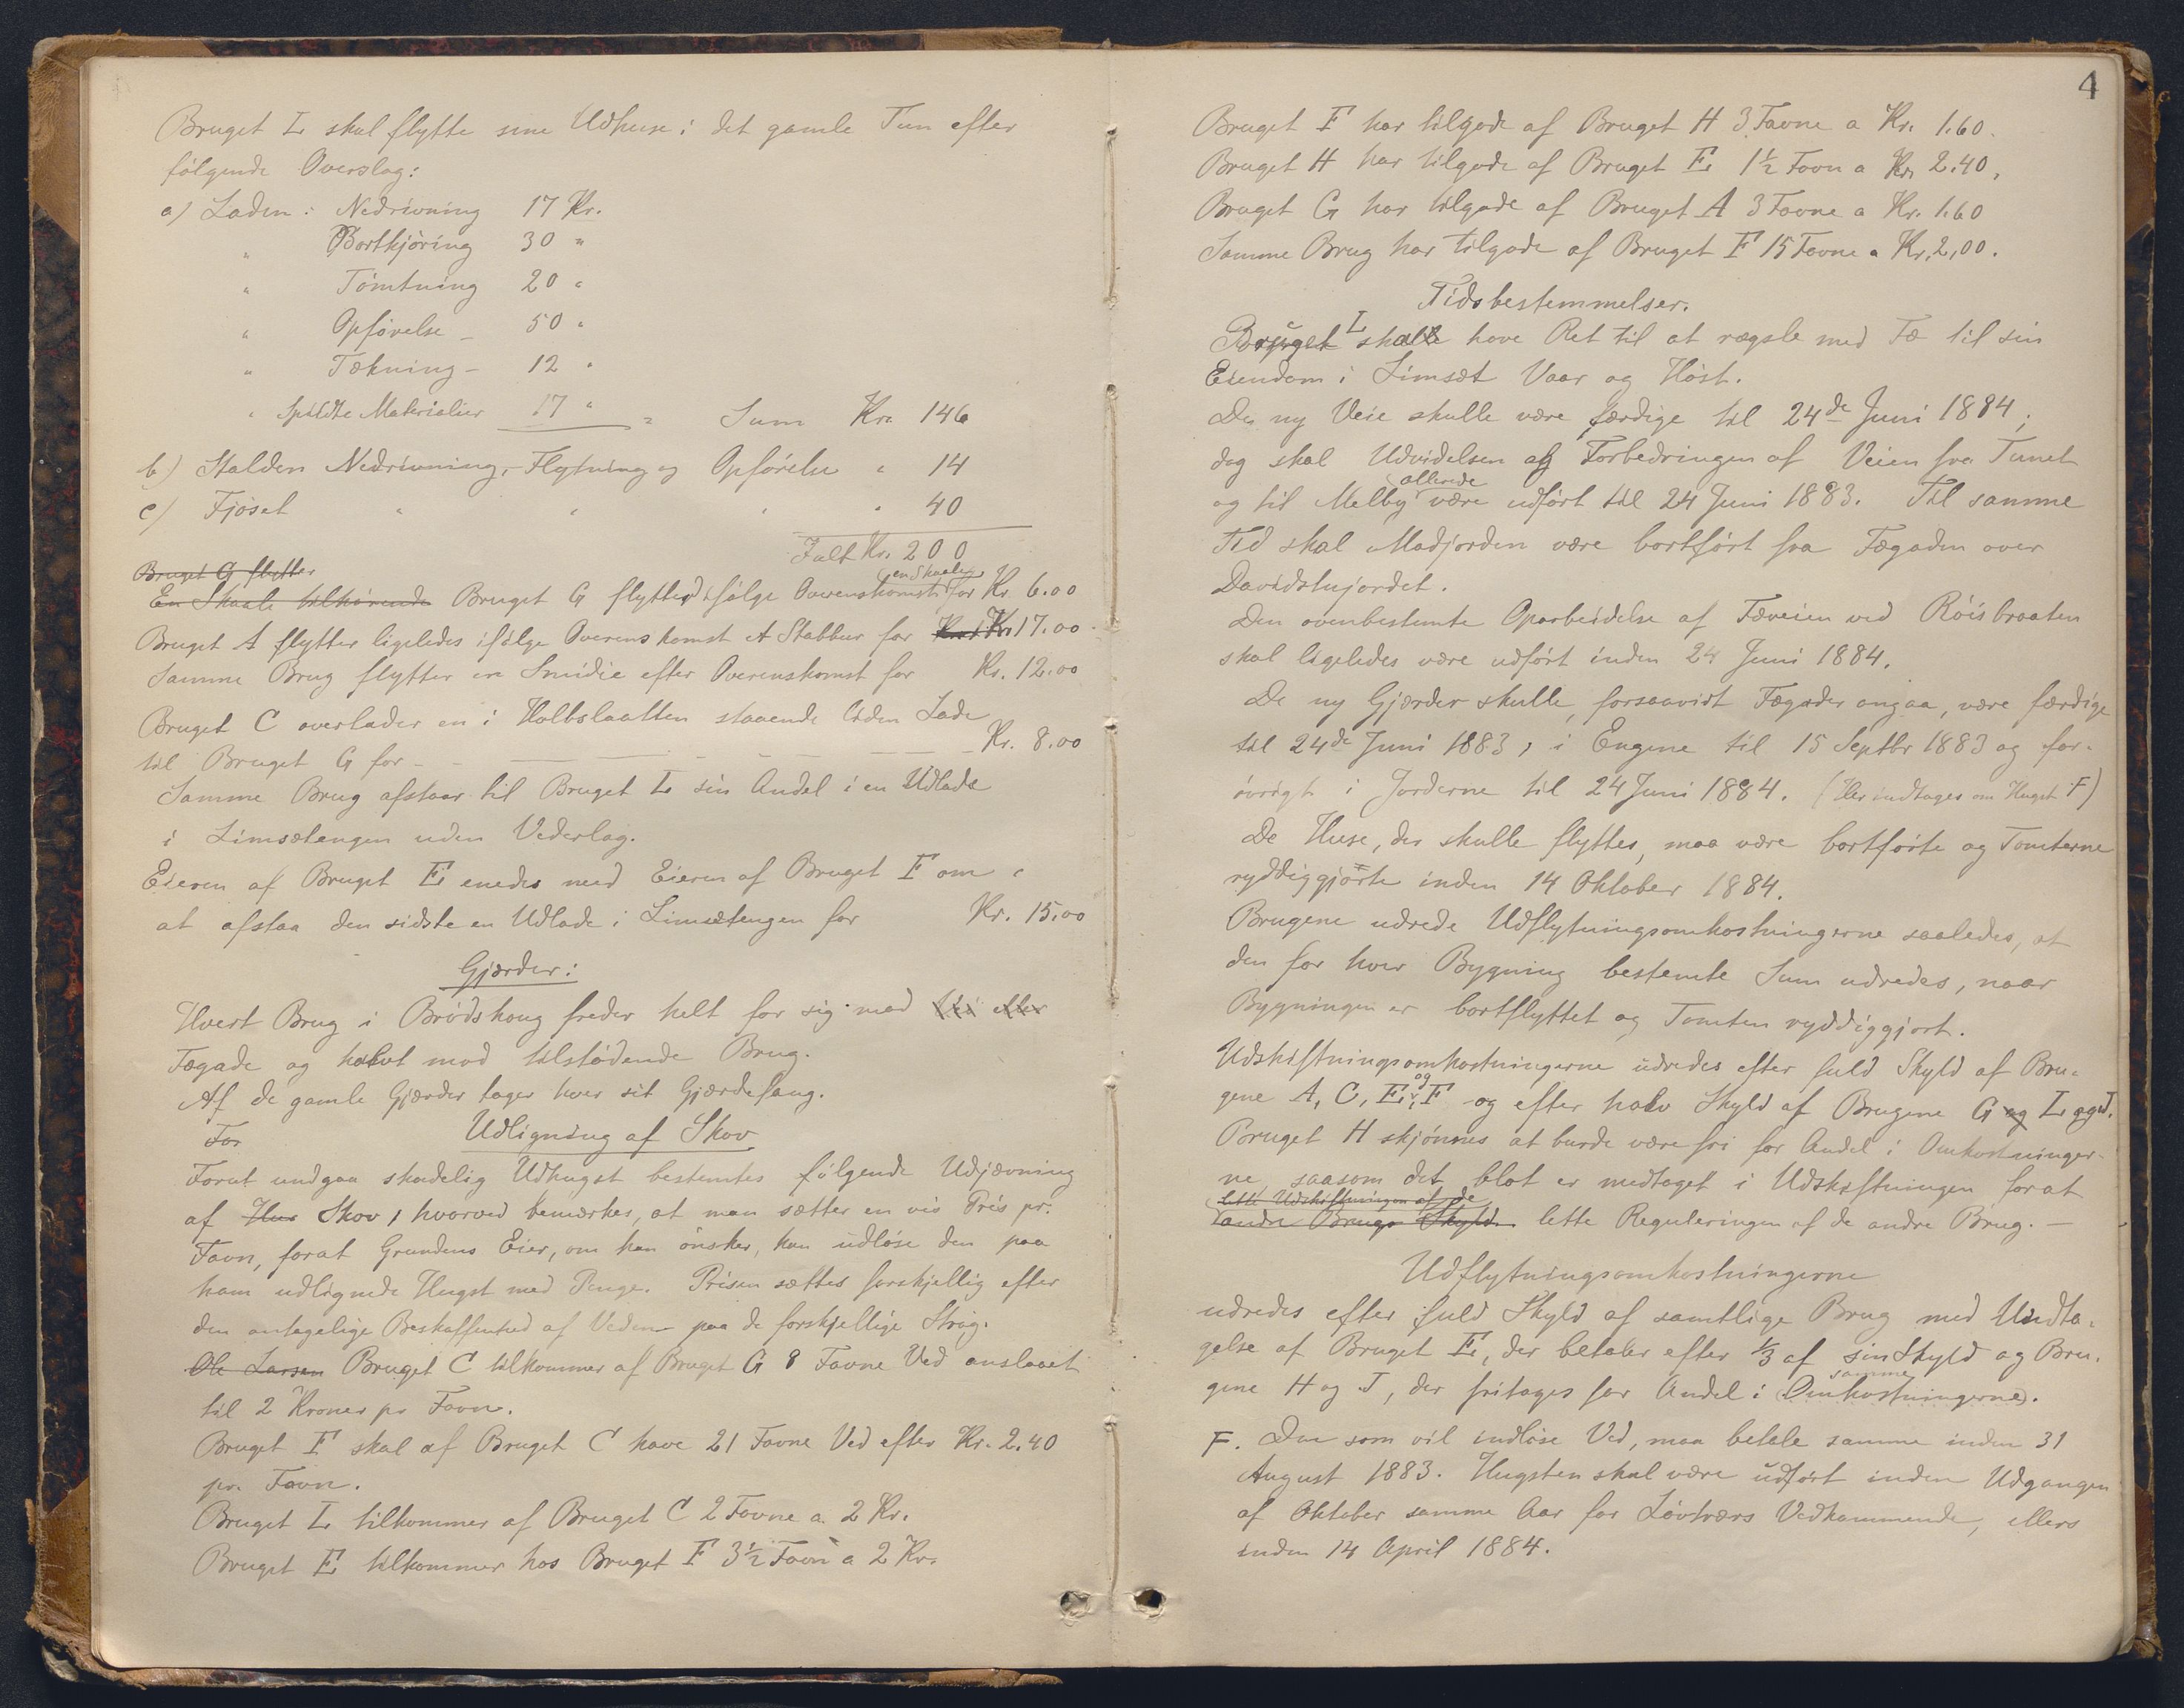 Bruget L skal flytte sine Udhuse i det gamle Tun efter
følgende Overslag:
a) Laden: Nedrivning 17 Kr.
" Bortkjøring 30 "
" Tømtning 20 "
" Opførelse _ 50 "
" Tækning - 12 "
" Spildte Materialier 17 " = Sum Kr. 146
b) Stalden Nedrivning, Flytning og Opførelse " 14
c) Fjøset " " " " 40
Ialt Kr. 200
Bruget G flytter
En Skaale tilhørende Bruget G flytter ifølge Overenskomst en Skaale for Kr. 6.00
Bruget A flytter ligeledes ifølge Overenskomst et Stabbur for Kr. 17.00
Samme Brug flytter en Smidie efter Overenskomst for Kr. 12.00
Bruget C overlader en i Holbslaatten staaende liden Lade
til Bruget G for - - Kr. 8.00
Samme Brug afstaar til Bruget L sin Andel i en Udlade
i Limsætengen uden Vederlag.
Eieren af Bruget E enedes med Eieren af Bruget F om
at afstaa den sidste en Udlade i Limsætengen for Kr. 15.00
Gjærder:
Hvert Brug i Brødshoug freder helt for sig mod eller
Fægade og halvt mod tilstødende Brug.
Af de gamle Gjærder tager hver sit Gjærdefang.
For Udligning af Skov
Forat undgaa skadelig Udhugst bestemtes følgende Udjævning
af Hus Skov, hvorved bemærkes, at man sætter en vis Pris pr.
Favn, forat Grundens Eier, om han ønsker, kan udløse den paa
ham udlignede Hugst med Penge. Prisen sættes forskjellig efter
den antagelige Beskaffenhed af Veden paa de forskjellige Strøg.
Ole Larsen Bruget C tilkommer af Bruget G 8 Favne Ved anslaaet
til 2 Kroner pr Favn.
Bruget F skal af Bruget C have 21 Favne Ved efter Kr. 2.40
pr. Favn.
Bruget L tilkommer af Bruget C 2 Favne a 2 Kr.
Bruget E tilkommer hos Bruget F 3½ Favn a 2 Kr.
4
Bruget F har tilgode af Bruget H 3 Favne a Kr. 1.60.
Bruget H har tilgode af Bruget E 1½ Favn a Kr. 2.40.
Bruget G har tilgode af Bruget A 3 Favne a Kr. 1.60
Samme Brug har tilgode af Bruget F 15 Favne a Kr. 2,00.
Tidsbestemmelser.
Bruget L skal have Ret til at rægsle med Fæ til sin
Eiendom i Limsæt Vaar og Høst.
De ny Veie skulle være færdige til 24de Juni 1884;
dog skal Udvidelsen og Forbedringen af Veien fra Tunet
og til Melby allerede være udført til 24 Juni 1883. Til samme
Tid skal Madjorden være bortført fra Fægaden over
Davidstujordet.
Den ovenbestemte Oparbeidelse af Fæveien ved Röisbraaten
skal ligeledes være udført inden 24 Juni 1884.
De ny Gjærder skulle, forsaavidt Fægader angaa, være færdige
til 24de Juni 1883, i Engene til 15 Septbr 1883 og for-
øvrigt i Jorderne til 24 Juni 1884. (Her indtages om Hugst F)
De Huse, der skulle flyttes, maa være bortførte og Tomterne
ryddiggjorte inden 14 Oktober 1884.
Brugene udrede Udflytningsomkostningerne saaledes, at
den for hver Bygning bestemte Sum udredes, naar
Bygningen er bortflyttet og Tomten ryddiggjort.
Udskiftningsomkostningerne udredes efter fuld Skyld af Bru-
gene A, C, E og F og efter halv Skyld af Brugene G og L og J.
Bruget H skjønnes at burde være fri for Andel i Omkostninger-
ne, saasom det blot er medtaget i Udskiftningen forat
lette Udskiftningen af de
andre Brugs Skyld lette Reguleringen af de andre Brug. —
Udflytningsomkostningerne
udredes efter fuld Skyld af samtlige Brug med Undta-
gelse af Bruget E, der betaler efter ⅓ af sin Skyld og Bru-
gene H og J, der fritages for Andel i samme Omkostningerne.
F. Den som vil indløse Ved, maa betale samme inden 31
August 1883. Hugsten skal være udført inden Udgangen
af Oktober samme Aar for Løvtræers Vedkommende, ellers
inden 14 April 1884.